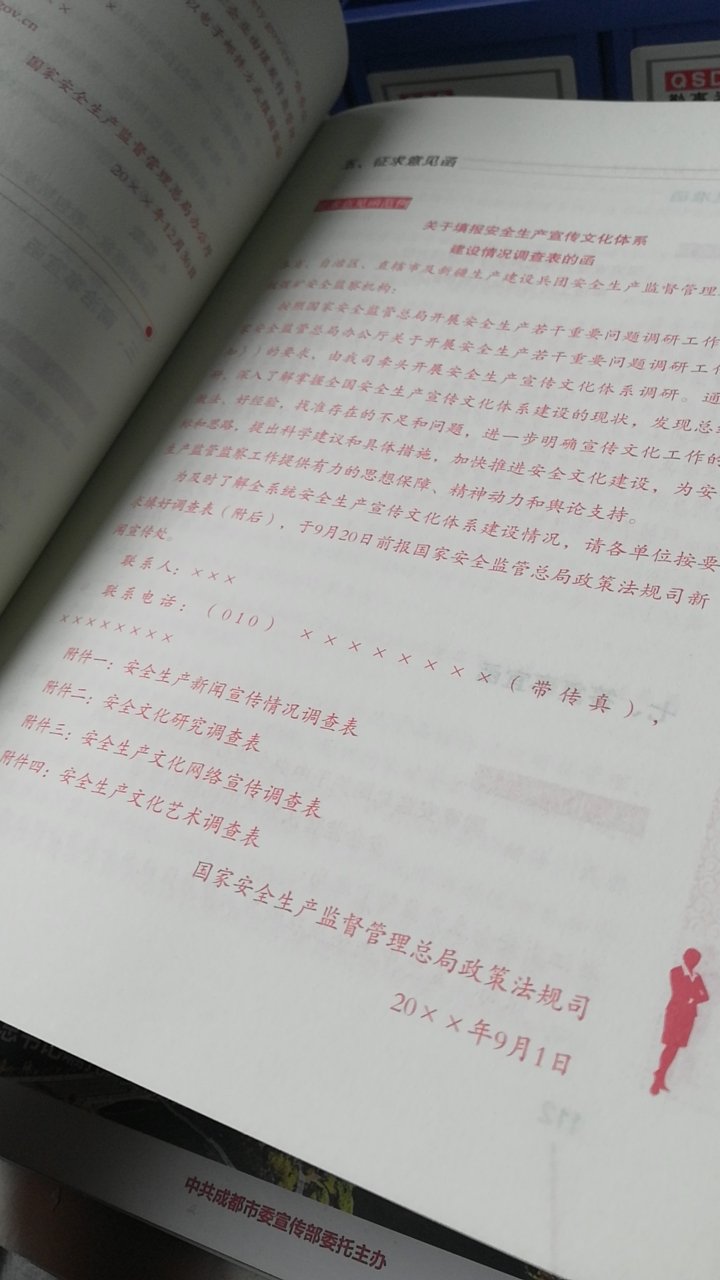 gov.cn
国家安全生产监督管理总局办公厅
20××年12月30日
QSD
五、征求意见函
关于填报安全生产宣传文化体系
建设情况调查表的函
自治区、直辖市及新疆生产建设兵团安全生产监督管理
煤矿安全监察机构：
按照国家安全监管总局开展安全生产若干重要问题调研工作
安全监管总局办公厅关于开展安全生产若干重要问题调研工作
知》）的要求，由我司牵头开展安全生产宣传文化体系调研。通
深入了解掌握全国安全生产宣传文化体系建设的现状，发现总结
做法、好经验，找准存在的不足和问题，进一步明确宣传文化工作的
标和思路，提出科学建议和具体措施，加快推进安全文化建设，为安
生产监管监察工作提供有力的思想保障、精神动力和舆论支持。
为及时了解全系统安全生产宣传文化体系建设情况，请各单位按要
求填好调查表（附后），于9月20日前报国家安全监管总局政策法规司新
闻宣传处。
联系人：×××
联系电话：（010） ××××××××（带传真），
××××××××
附件一：安全生产新闻宣传情况调查表
附件二：安全文化研究调查表
附件三：安全生产文化网络宣传调查表
附件四：安全生产文化艺术调查表
国家安全生产监督管理总局政策法规司
20××年9月1日
中共成都市委宣传部委托主办